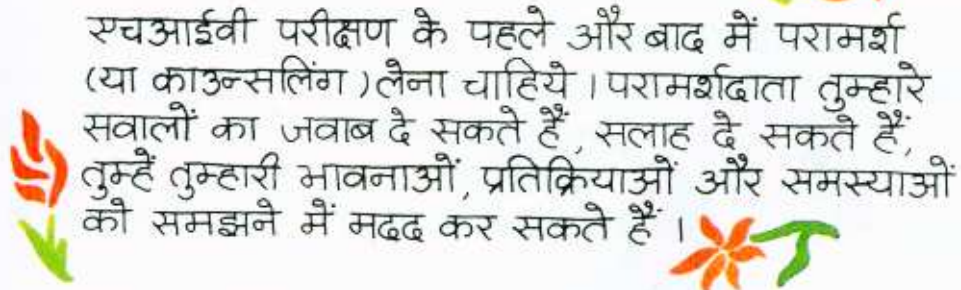 एचआईवी परीक्षण के पहले और बाद में परामर्श
(या काउन्सलिंग) लेना चाहिये । परामर्शदाता तुम्हारे
सवालों का जवाब दे सकते हैं, सलाह दे सकते हैं,
तुम्हें तुम्हारी भावनाओं, प्रतिक्रियाओं और समस्याओं
को समझने में मदद कर सकते हैं ।